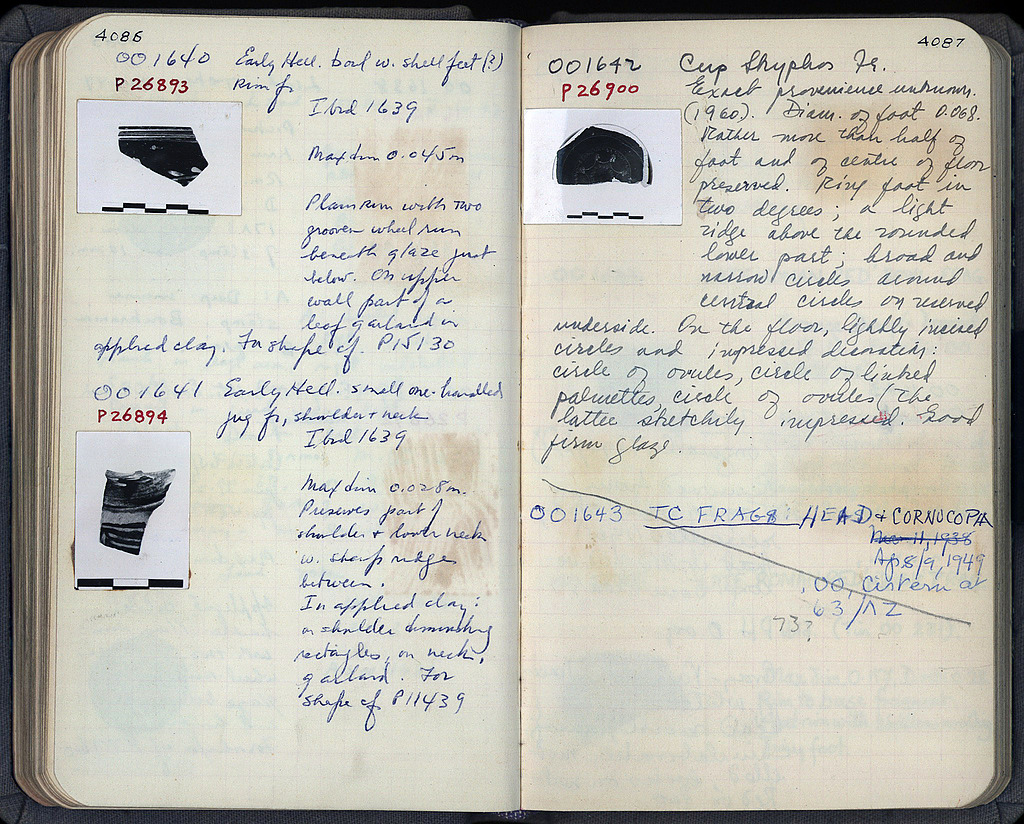 4086
OO 1640 Early Hell. bowl w. shell feet (?)
P 26893 Rim fr.
Ibid 1639
Max dim 0.045m
Plain rim with two
grooves wheel run
beneath glaze just
below. On upper
wall part of a
leaf garland in
applied clay. For shape cf. P15130
OO 1641 Early Hell. small one-handled
P 26894 jug fr., shoulder + neck
Ibid 1639
Max dim 0.028m.
Preserves part of
shoulder + lower neck
w. sharp ridge
between.
In applied clay:
on shoulder diminishing
rectangles, on neck,
garland. For
shape cf P11439
4087
OO 1642 Cup Skyphos Fr.
P 26900 Exact provenience unknown.
(1960). Diam. of foot 0.068.
Rather more than half of
foot and of centre of floor
preserved. Ring foot in
two degrees; a light
ridge above the rounded
lower part; broad and
narrow circles around
central circles on reserved
underside. On the floor, lightly incised
circles and impressed decoration:
circle of ovules, circle of linked
palmettes, circle of ovules (the
latter sketchily impressed. Good
firm glaze.
OO 1643 TC FRAGS: HEAD & CORNUCOPIA
Mar 11, 1938
Ap 8/9, 1949
OO, Cistern at
63/ΛΖ
73?